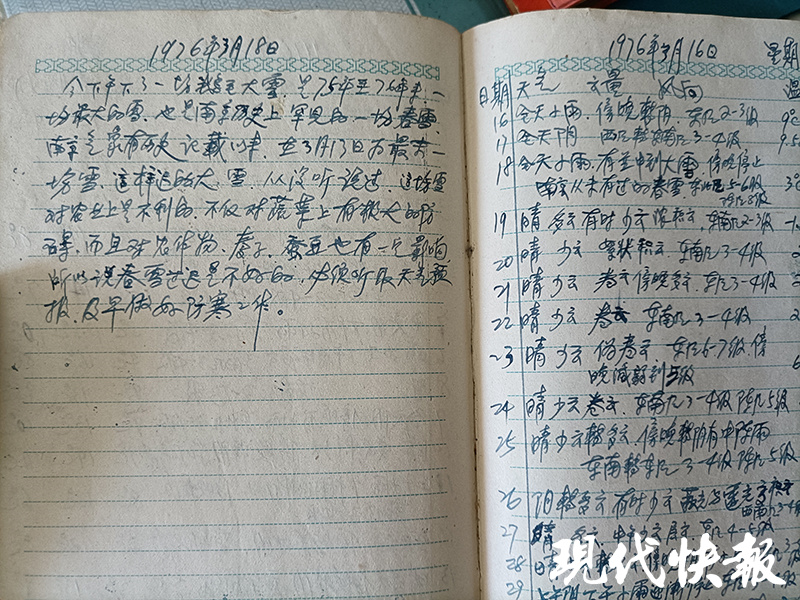 1976年3月18日
今下午下了一场 大雪,是75年至76年来一
场最大的雪,也是南京历史上罕见的一场春雪
南京气象有历史记载以来,在3月13日为最大一
场雪,这样迟的大雪,从没听说过,这场雪
对农业上是不利的,不仅对蔬菜上有极大的防
碍,而且对农作物、麦子、蚕豆也有一定影响
所以说春雪过迟是不好的,必须听取天气预
报,及早做好防寒工作。
1976年3月16日 星期
日期 天气 云量 风向 温
16 今天小雨,傍晚转阴,东风2-3级 9°
17 今天阴 西风转东南风3-4级 9.5
18 今天小雨,有时中到大雪,傍晚停止 3°
南京从未有过的春雪,东北风5-6级
阵风8级
19 晴 多云有时少云 积云,东南风2-3级 -1
20 晴 少云 积云,东南风3-4级 2
21 晴 少云 卷云傍晚多云,东风3-4级 2
22 晴 少云 卷云 东南风3-4级 2
23 晴 少云 伪卷云 东风6-7级,傍
晚减弱到5级
24 晴 少云卷云,东南风3-4级阵风5级
25 晴 少云转多云,傍晚转阴有中阵雨
东南转东风3-4级阵风5级
26 阴转多云有时少云
西南风3-4级
27 晴 多云 中午少云 4-5级
28
29 上午阴下午小雨
现代快報